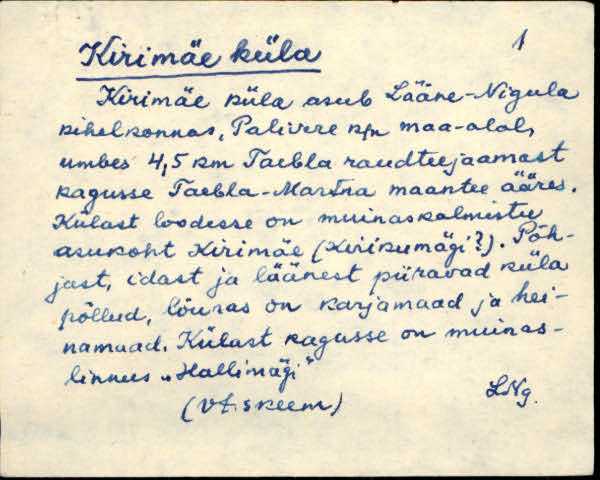 Kirimäe küla 1
Kirimäe küla asub Lääne-Nigula
kihelkonnas, Palivere k/n maa-alal,
umbes 4,5 km Taebla raudteejaamast
kagusse Taebla-Martna maantee ääres.
Külast loodesse on muinaskalmistu
asukoht Kirimäe (Kirikumägi?). Põh-
jast, idast ja läänest piiravad küla
põllud, lõunas on karjamaad ja hei-
namaad. Külast kagusse on muinas-
linnus „Hallimägi"
(vt. skeem) LNg.